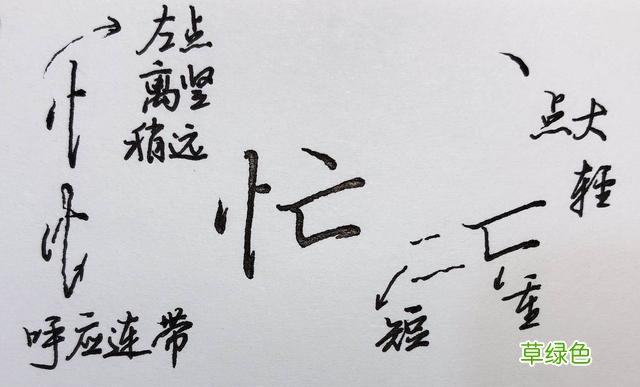 左点
离竖
稍远
忙
呼应连带
点大
轻
短
重
草绿色